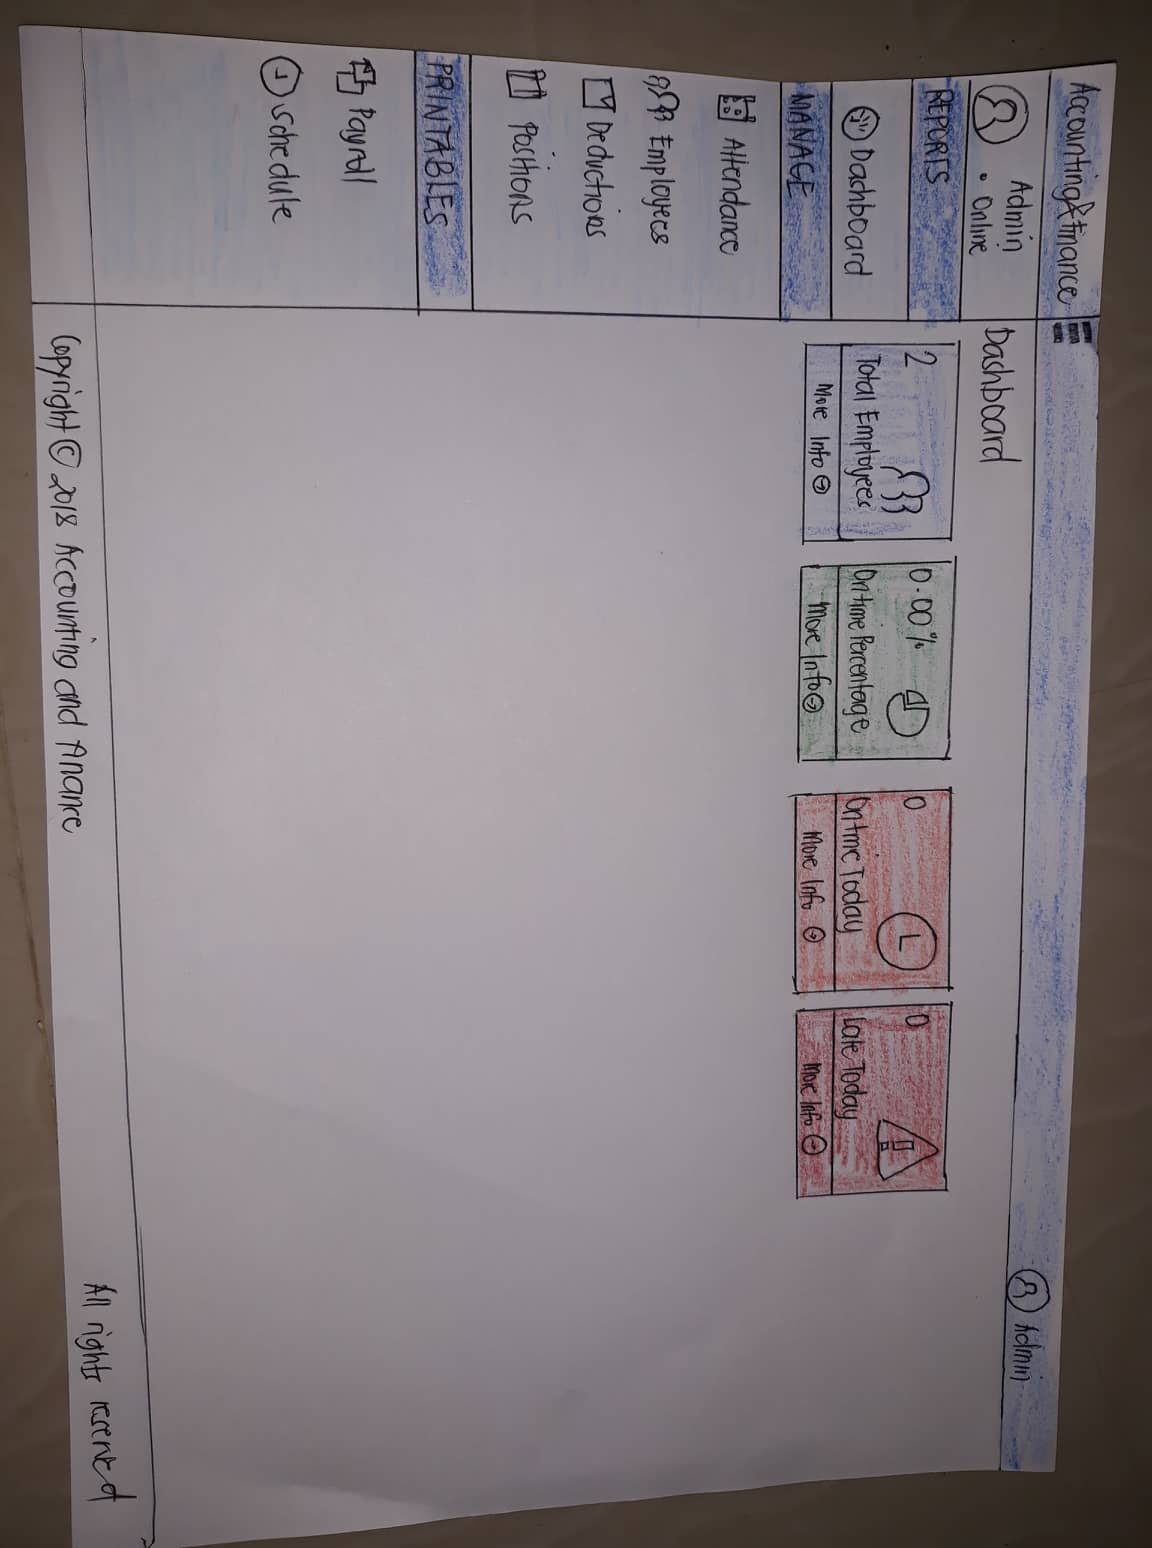 Accounting & finance
Admin
Admin
• Online
REPORTS
Dashboard
MANAGE
Attendance
Employees
Deductions
Positions
PRINTABLES
Payroll
Schedule
Dashboard
2
Total Employees
More Info
0.00%
Ontime Percentage
More Info
0
Ontime Today
More Info
0
Late Today
More Info
Copyright © 2018 Accounting and finance
All rights reserved